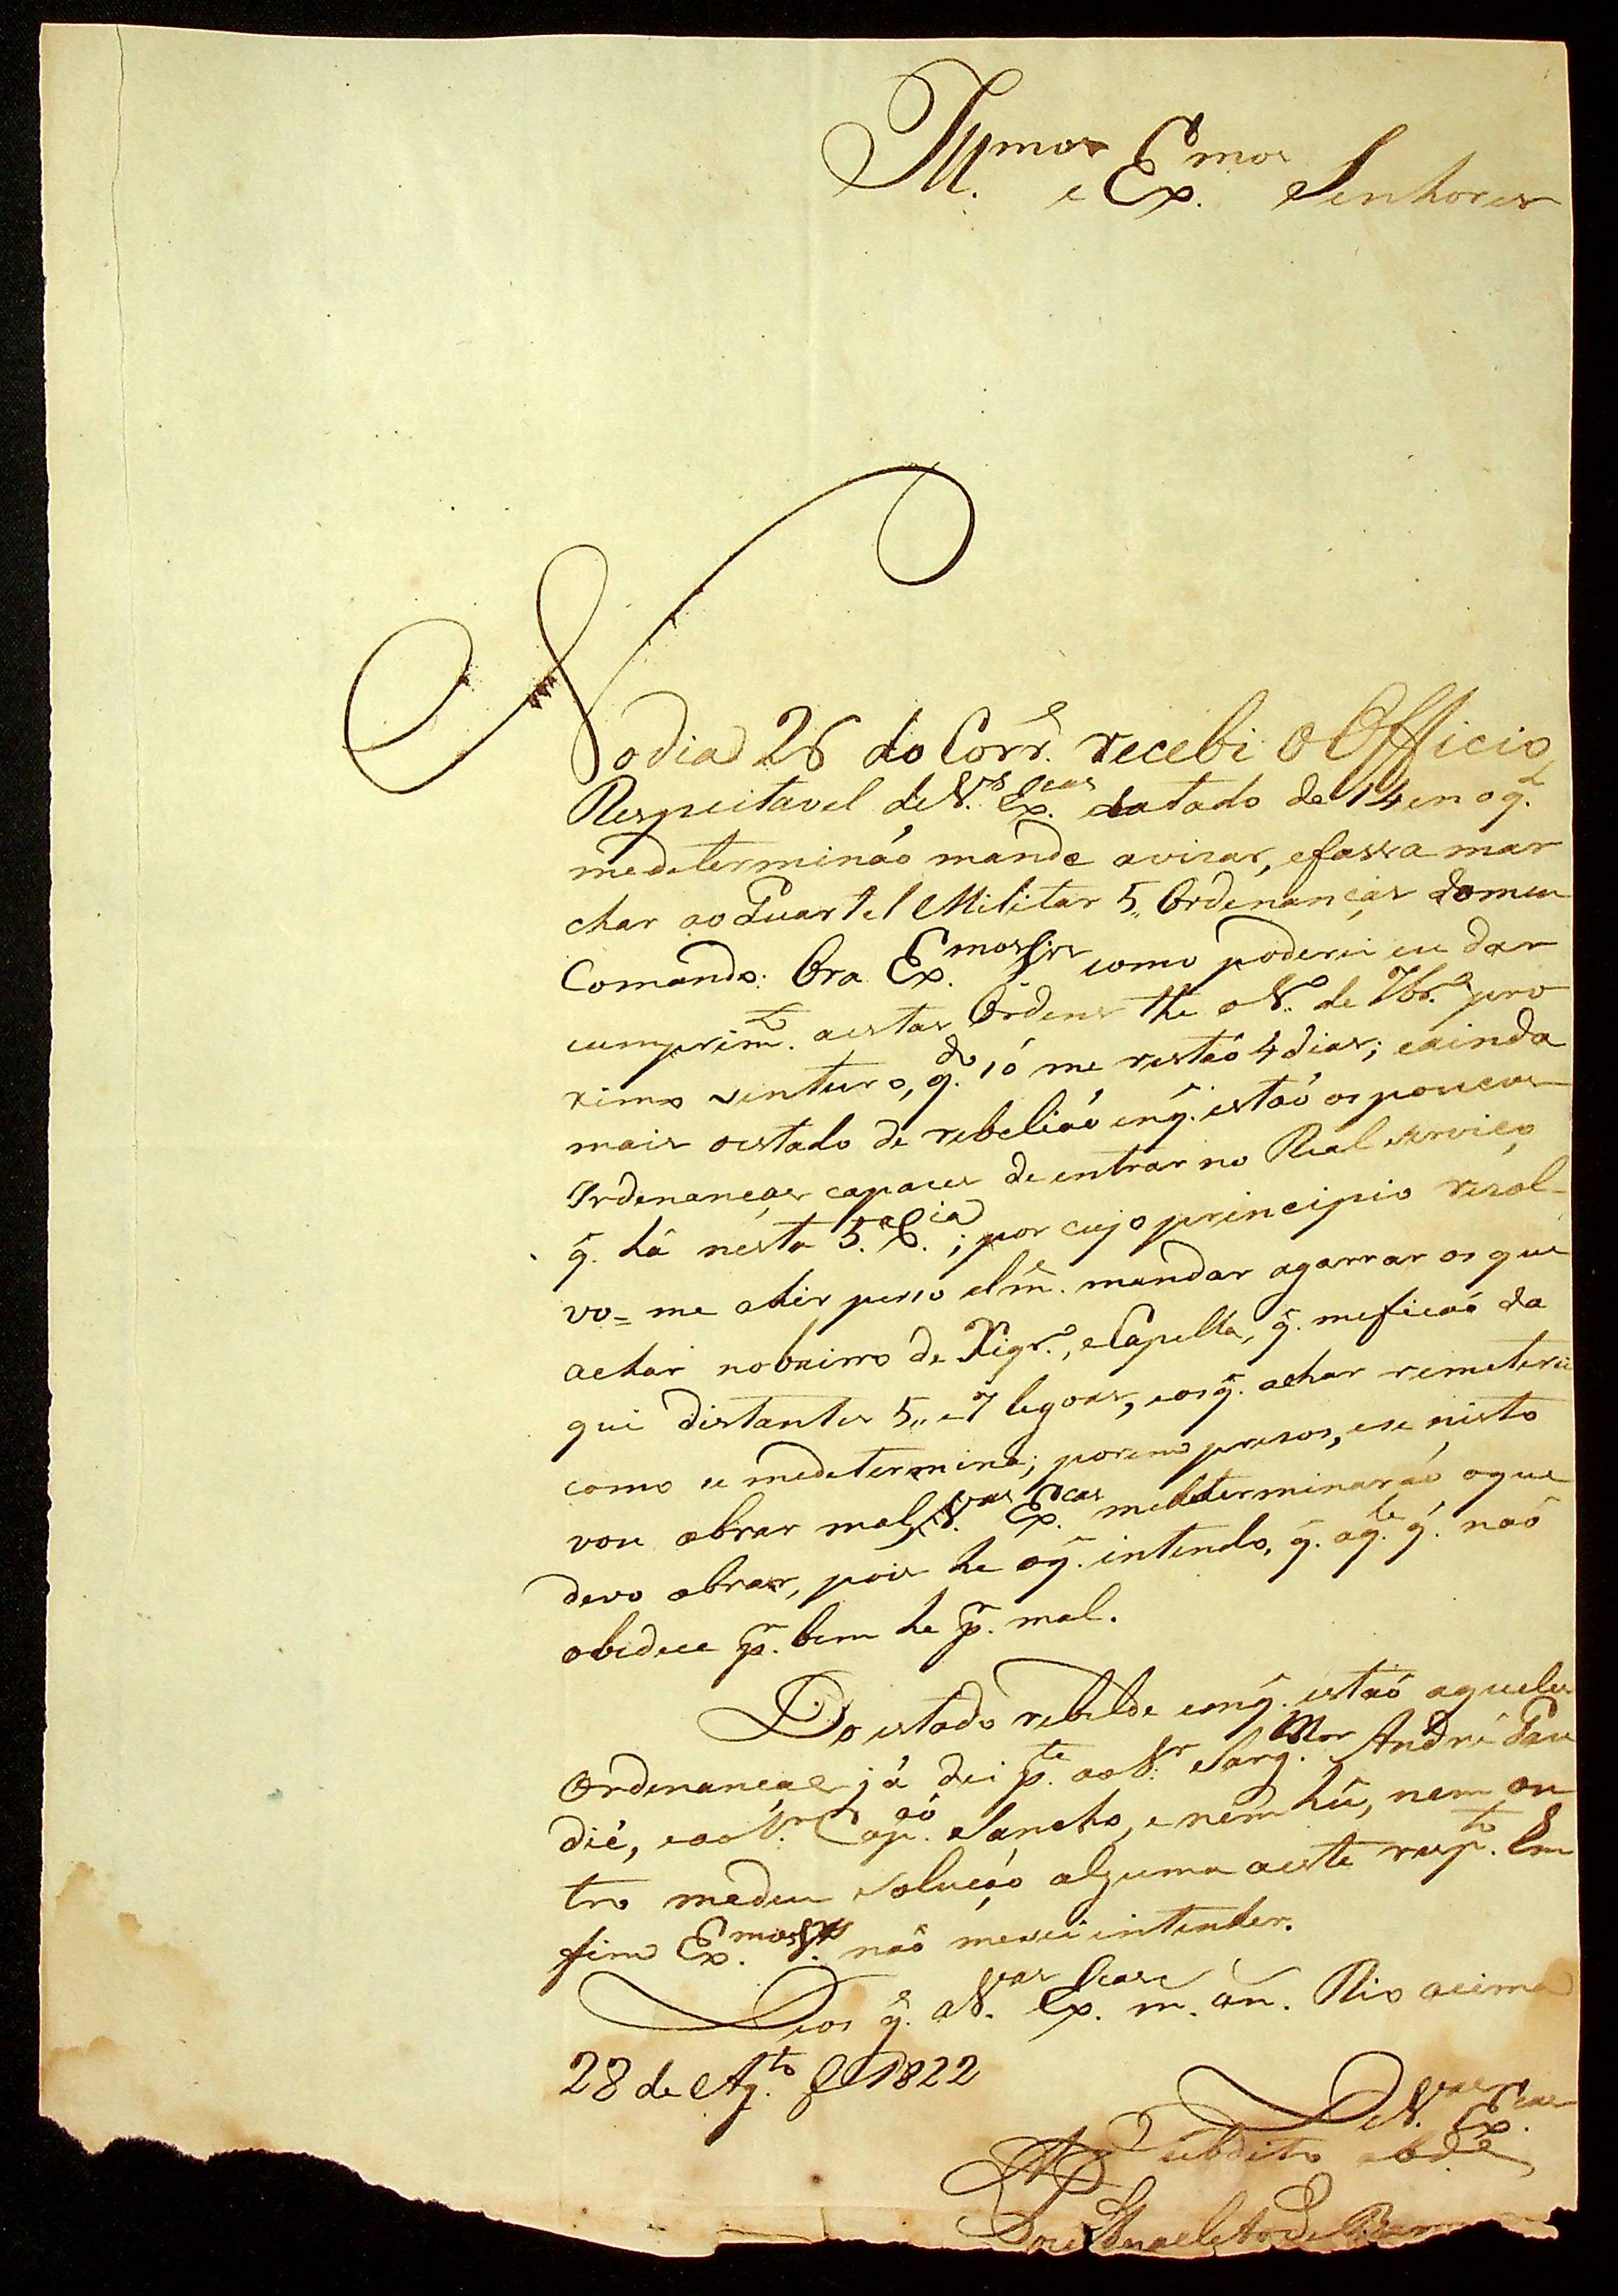 Ill.mos e Ex.mos Senhores
No dia 26 do Corr.e recebi o Officio
Respeitavel de V.as Ex.cias datado de 14 em o q.l
me determináo mande avizar, e fassa mar
char ao Quartel Militar 5,, Ordenanças do meu
Comando: Ora Ex.mos Snr.s como poderei eu dar
cumprim.to a estas Ordens the o 1.o de 7br.o pro
ximo venturo, q.do só me restáo 4 dias; e ainda
mais o estado de rebeliáo em q̃. estáo os poucos
Ordenanças capaces de entrar no Real serviço
q̃. há nésta 5.a C.ia; por cujo principio resol-
vo=me a hir pesso alm.e mandar agarrar os que
achar no bairro de Xiqr.o, e Capella, q̃. me ficaó da
qui distantes 5,, e 7 legoas, e os q̃. achar remeterei
como se me determina; porem prezos, e se nisto
vou obrar mal, V.as Ex.cas me determinaráo o que
devo obrar, pois he o q̃. intendo, q̃. aq.le q̃. naó
obedece p.r bem he p.r mal.
Do estado rebelde em q̃. estaó aqueles
Ordenanças já dei p.te ao S.r Sarg. Mor André Gau
dié, e ao S.r Cap.aó Sancho, e nem hũ, nem ou
tro me deu soluçáo alguma a este resp.to Em
fim Ex.mos Snr.s naó me sei intender.
Deos g.e a V.as Ex.cas m. an. Rio acima
28 de Ag.to de 1822
De V.as Ex.cas
Subdito obd.e
José Anacleto de